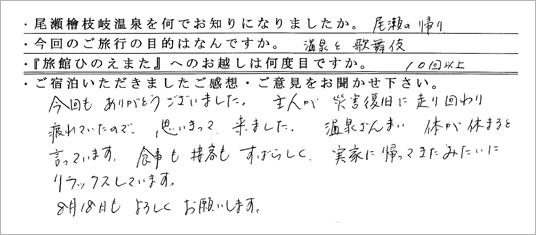 ・尾瀬檜枝岐温泉を何でお知りになりましたか。 尾瀬の帰り
・今回のご旅行の目的はなんですか。 温泉と歌舞伎
・『旅館ひのえまた』へのお越しは何度目ですか。 10回以上
・ご宿泊いただきましたご感想・ご意見をお聞かせ下さい。
今回も ありがとうございました。 主人が 災害復旧に走り回わり
疲れていたので、思いきって 来ました。 温泉ざんまい 体が休まると
言っています。 食事も接客も すばらしく、実家に帰ってきたみたいに
リラックスしています。
8月18日も よろしく お願いします。